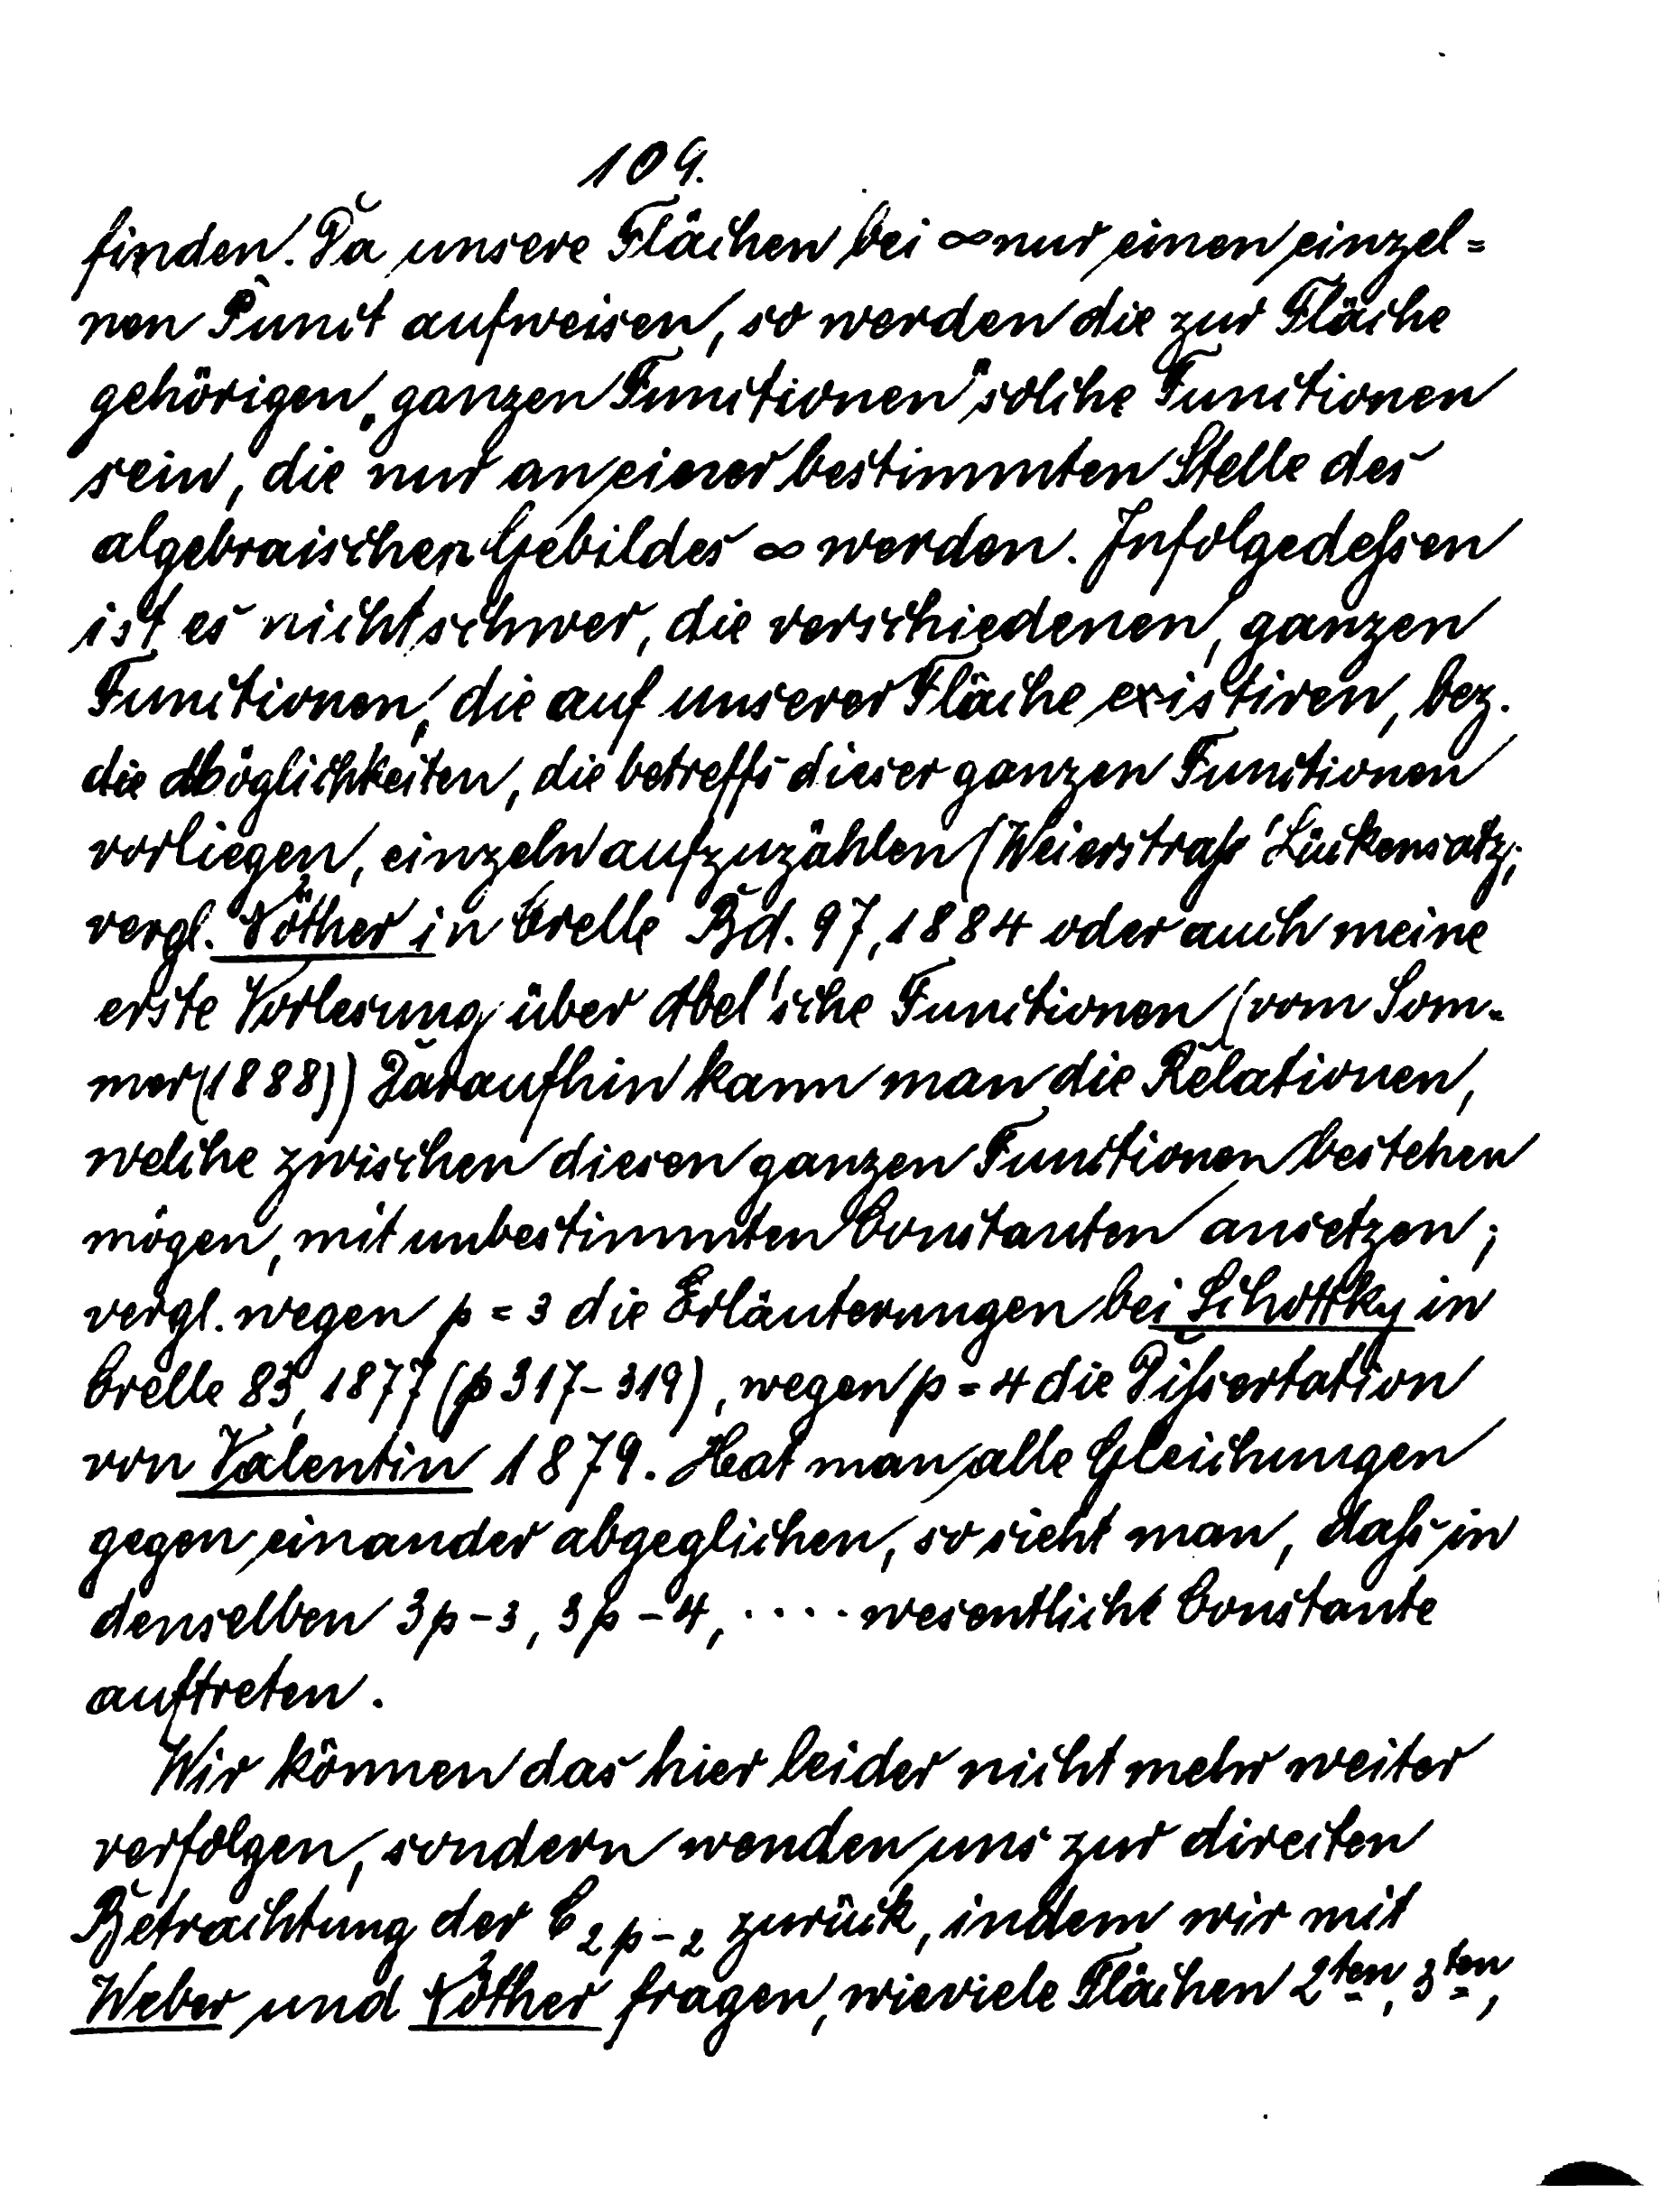 109.
finden. Da unsere Flächen bei ∞ nur einen einzel=
nen Punct aufweisen, so werden die zur Fläche
gehörigen „ganzen Functionen" solche Functionen
sein, die nur an einer bestimmten Stelle des
algebraischen Gebildes ∞ werden. Infolgedeßen
ist es nicht schwer, die verschiedenen, ganzen
Functionen, die auf unserer Fläche existiren, bez.
die Möglichkeiten, die betreffs dieser ganzen Functionen
vorliegen, einzeln aufzuzählen (Weierstraß' Lückensatz;
vergl. Nöther in Crelle Bd. 97, 1884 oder auch meine
erste Vorlesung über Abel'sche Functionen (vom Som-
mer (1888)) Daraufhin kann man die Relationen,
welche zwischen diesen ganzen Functionen bestehen
mögen, mit unbestimmten Constanten ansetzen;
vergl. wegen p = 3 die Erläuterungen bei Schottky in
Crelle 83, 1877 (p 317-319), wegen p = 4 die Dißertation
von Valentin 1879. Hat man alle Gleichungen
gegen einander abgeglichen, so sieht man, daß in
denselben 3p-3, 3p-4, .... wesentliche Constante
auftreten.
Wir können das hier leider nicht mehr weiter
verfolgen, sondern wenden uns zur directen
Betrachtung der C₂ₚ₋₂ zurück, indem wir mit
Weber und Nöther fragen, wieviele Flächen 2ten, 3ten,